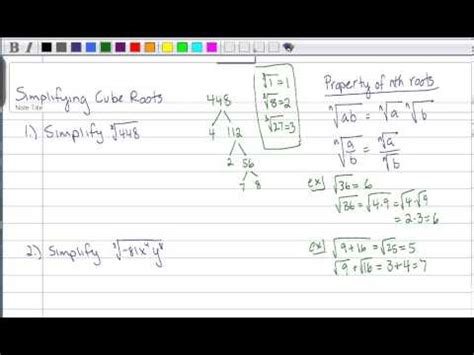 B I
Simplifying Cube Roots
Note Title
1.) Simplify ∛448
448
4 112
2 56
7 8
∛1 = 1
∛8 = 2
∛27 = 3
Property of nth roots
ⁿ√ab = ⁿ√a ⁿ√b
ⁿ√(a/b) = ⁿ√a / ⁿ√b
ex) √36 = 6
√36 = √4·9 = √4·√9
= 2·3 = 6
2.) Simplify ∛-81x⁴y⁸
ex) √9+16 = √25 = 5
√9 + √16 = 3+4 = 7